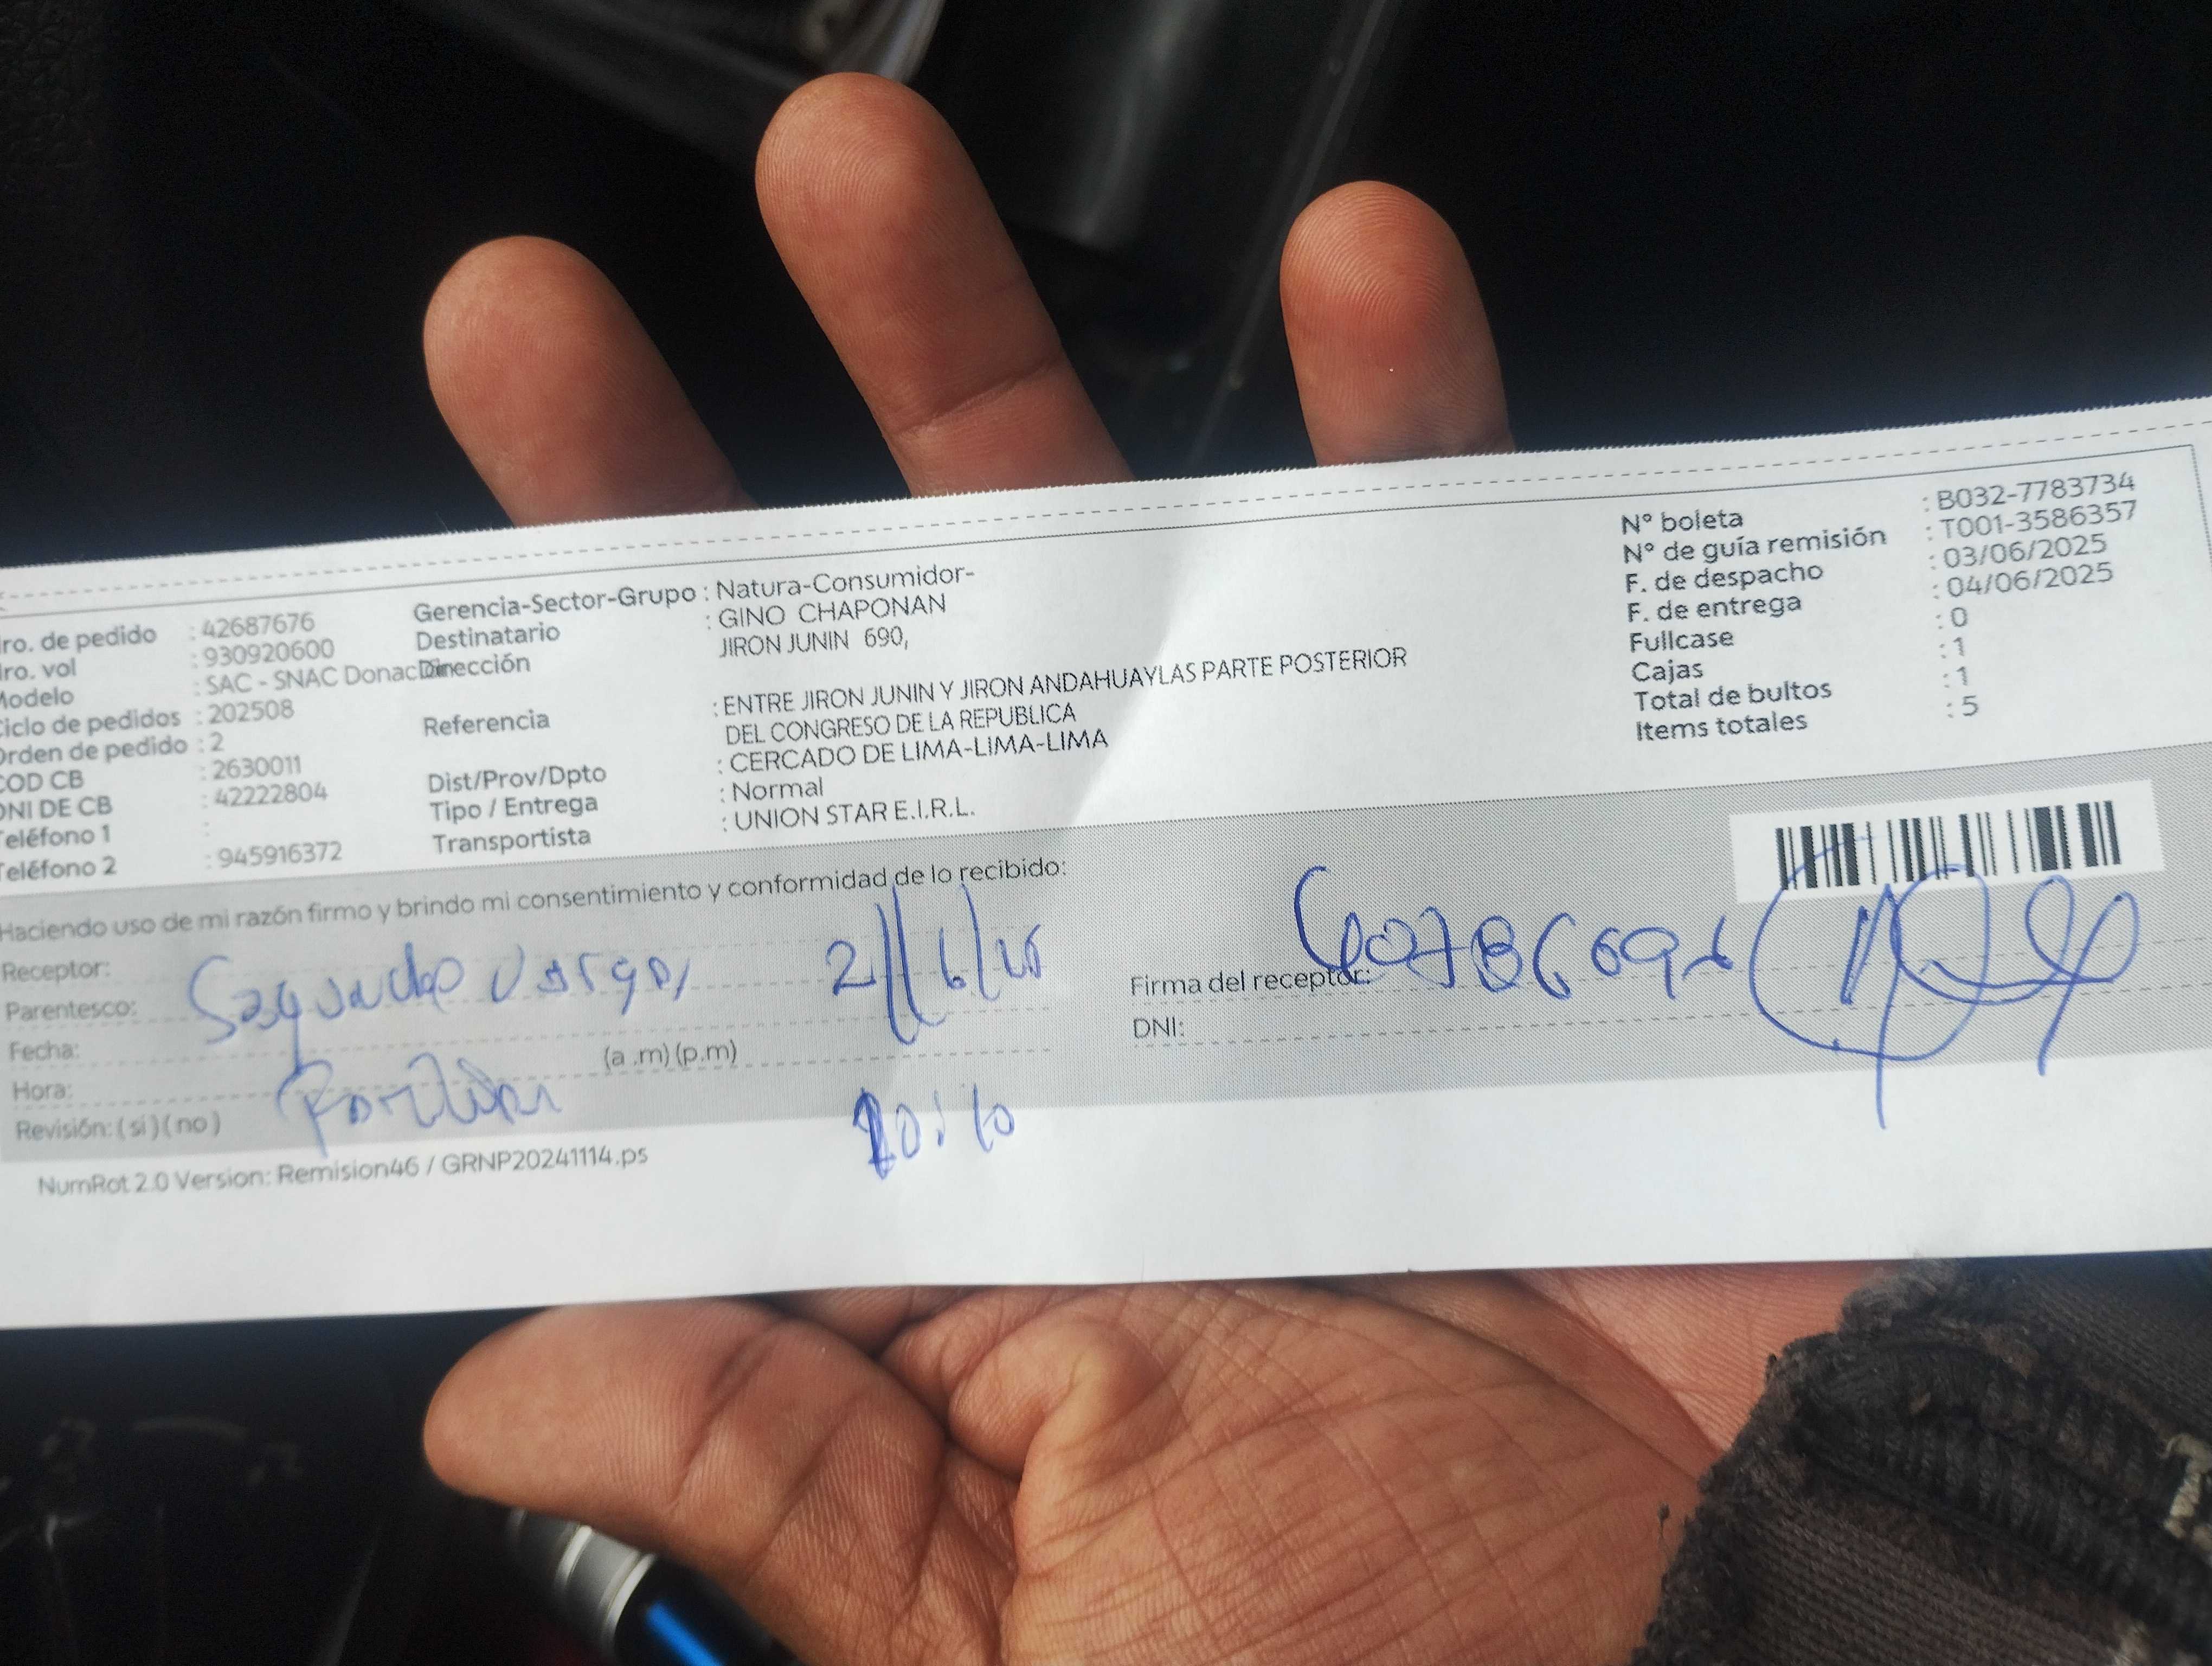 ro. de pedido : 42687676
ro. vol : 930920600
Modelo : SAC - SNAC Donación
Ciclo de pedidos : 202508
Orden de pedido : 2
COD CB : 2630011
DNI DE CB : 42222804
Teléfono 1 :
Teléfono 2 : 945916372
Gerencia-Sector-Grupo : Natura-Consumidor-
Destinatario : GINO CHAPONAN
Dirección JIRON JUNIN 690,
Referencia : ENTRE JIRON JUNIN Y JIRON ANDAHUAYLAS PARTE POSTERIOR
DEL CONGRESO DE LA REPUBLICA
Dist/Prov/Dpto : CERCADO DE LIMA-LIMA-LIMA
Tipo / Entrega : Normal
Transportista : UNION STAR E.I.R.L.
N° boleta : B032-7783734
N° de guía remisión : T001-3586357
F. de despacho : 03/06/2025
F. de entrega : 04/06/2025
Fullcase : 0
Cajas : 1
Total de bultos : 1
Items totales : 5
Haciendo uso de mi razón firmo y brindo mi consentimiento y conformidad de lo recibido:
Receptor:
Parentesco:
Fecha:
Hora: (a .m) (p.m)
Revisión: ( si ) ( no )
Firma del receptor:
DNI:
NumRot 2.0 Version: Remision46 / GRNP20241114.ps